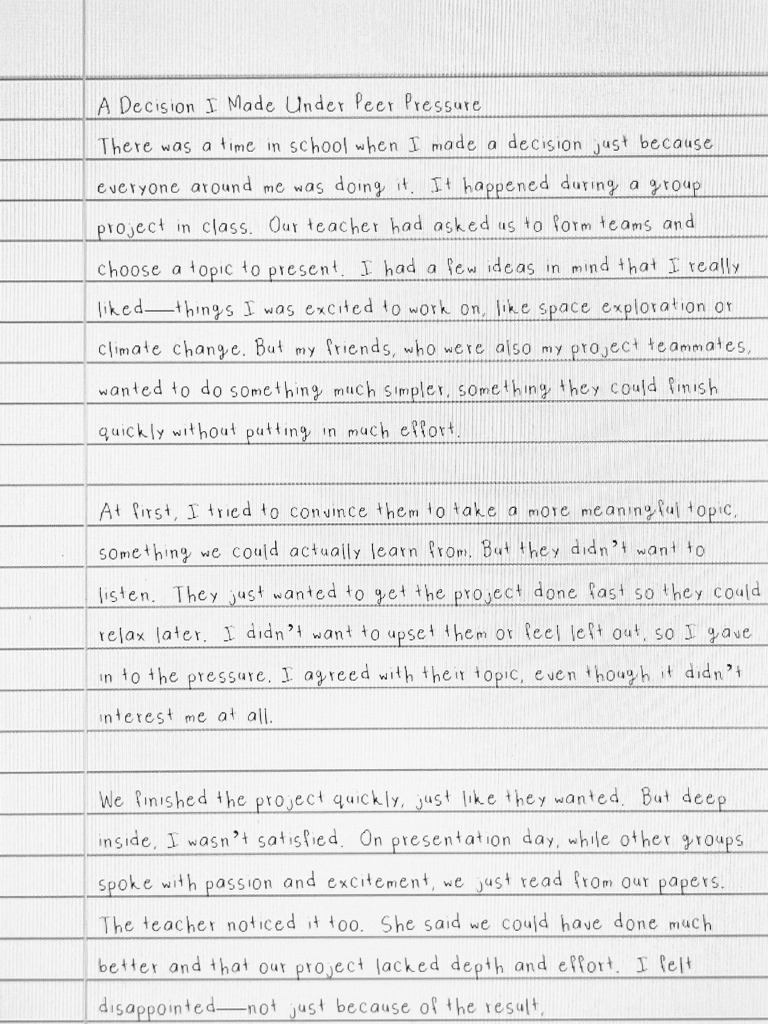 A Decision I Made Under Peer Pressure
There was a time in school when I made a decision just because
everyone around me was doing it. It happened during a group
project in class. Our teacher had asked us to form teams and
choose a topic to present. I had a few ideas in mind that I really
liked—things I was excited to work on, like space exploration or
climate change. But my friends, who were also my project teammates,
wanted to do something much simpler, something they could finish
quickly without putting in much effort.
At first, I tried to convince them to take a more meaningful topic,
something we could actually learn from. But they didn't want to
listen. They just wanted to get the project done fast so they could
relax later. I didn't want to upset them or feel left out, so I gave
in to the pressure. I agreed with their topic, even though it didn't
interest me at all.
We finished the project quickly, just like they wanted. But deep
inside, I wasn't satisfied. On presentation day, while other groups
spoke with passion and excitement, we just read from our papers.
The teacher noticed it too. She said we could have done much
better and that our project lacked depth and effort. I felt
disappointed—not just because of the result,